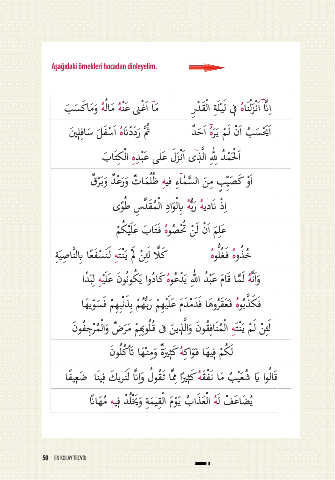 Aşağıdaki örnekleri hocadan dinleyelim.
اِنَّٓا اَنْزَلْنَاهُ ف۪ي لَيْلَةِ الْقَدْرِ مَٓا اَغْنٰى عَنْهُ مَالُهُ وَمَا كَسَبَ
اَيَحْسَبُ اَنْ لَمْ يَرَهُٓ اَحَدٌ ثُمَّ رَدَدْنَاهُ اَسْفَلَ سَافِل۪ينَ
اَلْحَمْدُ لِلّٰهِ الَّذ۪ٓي اَنْزَلَ عَلٰى عَبْدِهِ الْكِتَابَ
اَوْ كَصَيِّبٍ مِنَ السَّمَٓاءِ ف۪يهِ ظُلُمَاتٌ وَرَعْدٌ وَبَرْقٌ
اِذْ نَادٰيهُ رَبُّهُ بِالْوَادِ الْمُقَدَّسِ طُوًى
عَلِمَ اَنْ لَنْ تُحْصُوهُ فَتَابَ عَلَيْكُمْ
خُذُوهُ فَغُلُّوهُ كَلَّا لَئِنْ لَمْ يَنْتَهِ لَنَسْفَعًا بِالنَّاصِيَةِ
وَاَنَّهُ لَمَّا قَامَ عَبْدُ اللّٰهِ يَدْعُوهُ كَادُوا يَكُونُونَ عَلَيْهِ لِبَدًا
فَكَذَّبُوهُ فَعَقَرُوهَا فَدَمْدَمَ عَلَيْهِمْ رَبُّهُمْ بِذَنْبِهِمْ فَسَوّٰيهَا
لَئِنْ لَمْ يَنْتَهِ الْمُنَافِقُونَ وَالَّذ۪ينَ ف۪ي قُلُوبِهِمْ مَرَضٌ وَالْمُرْجِفُونَ
لَكُمْ ف۪يهَا فَوَاكِهُ كَث۪يرَةٌ وَمِنْهَا تَأْكُلُونَ
قَالُوا يَا شُعَيْبُ مَا نَفْقَهُ كَث۪يرًا مِمَّا تَقُولُ وَاِنَّا لَنَرٰيكَ ف۪ينَا ضَع۪يفًا
يُضَاعَفْ لَهُ الْعَذَابُ يَوْمَ الْقِيٰمَةِ وَيَخْلُدْ ف۪يهِ مُهَانًا
50 EN KOLAY TECVİD